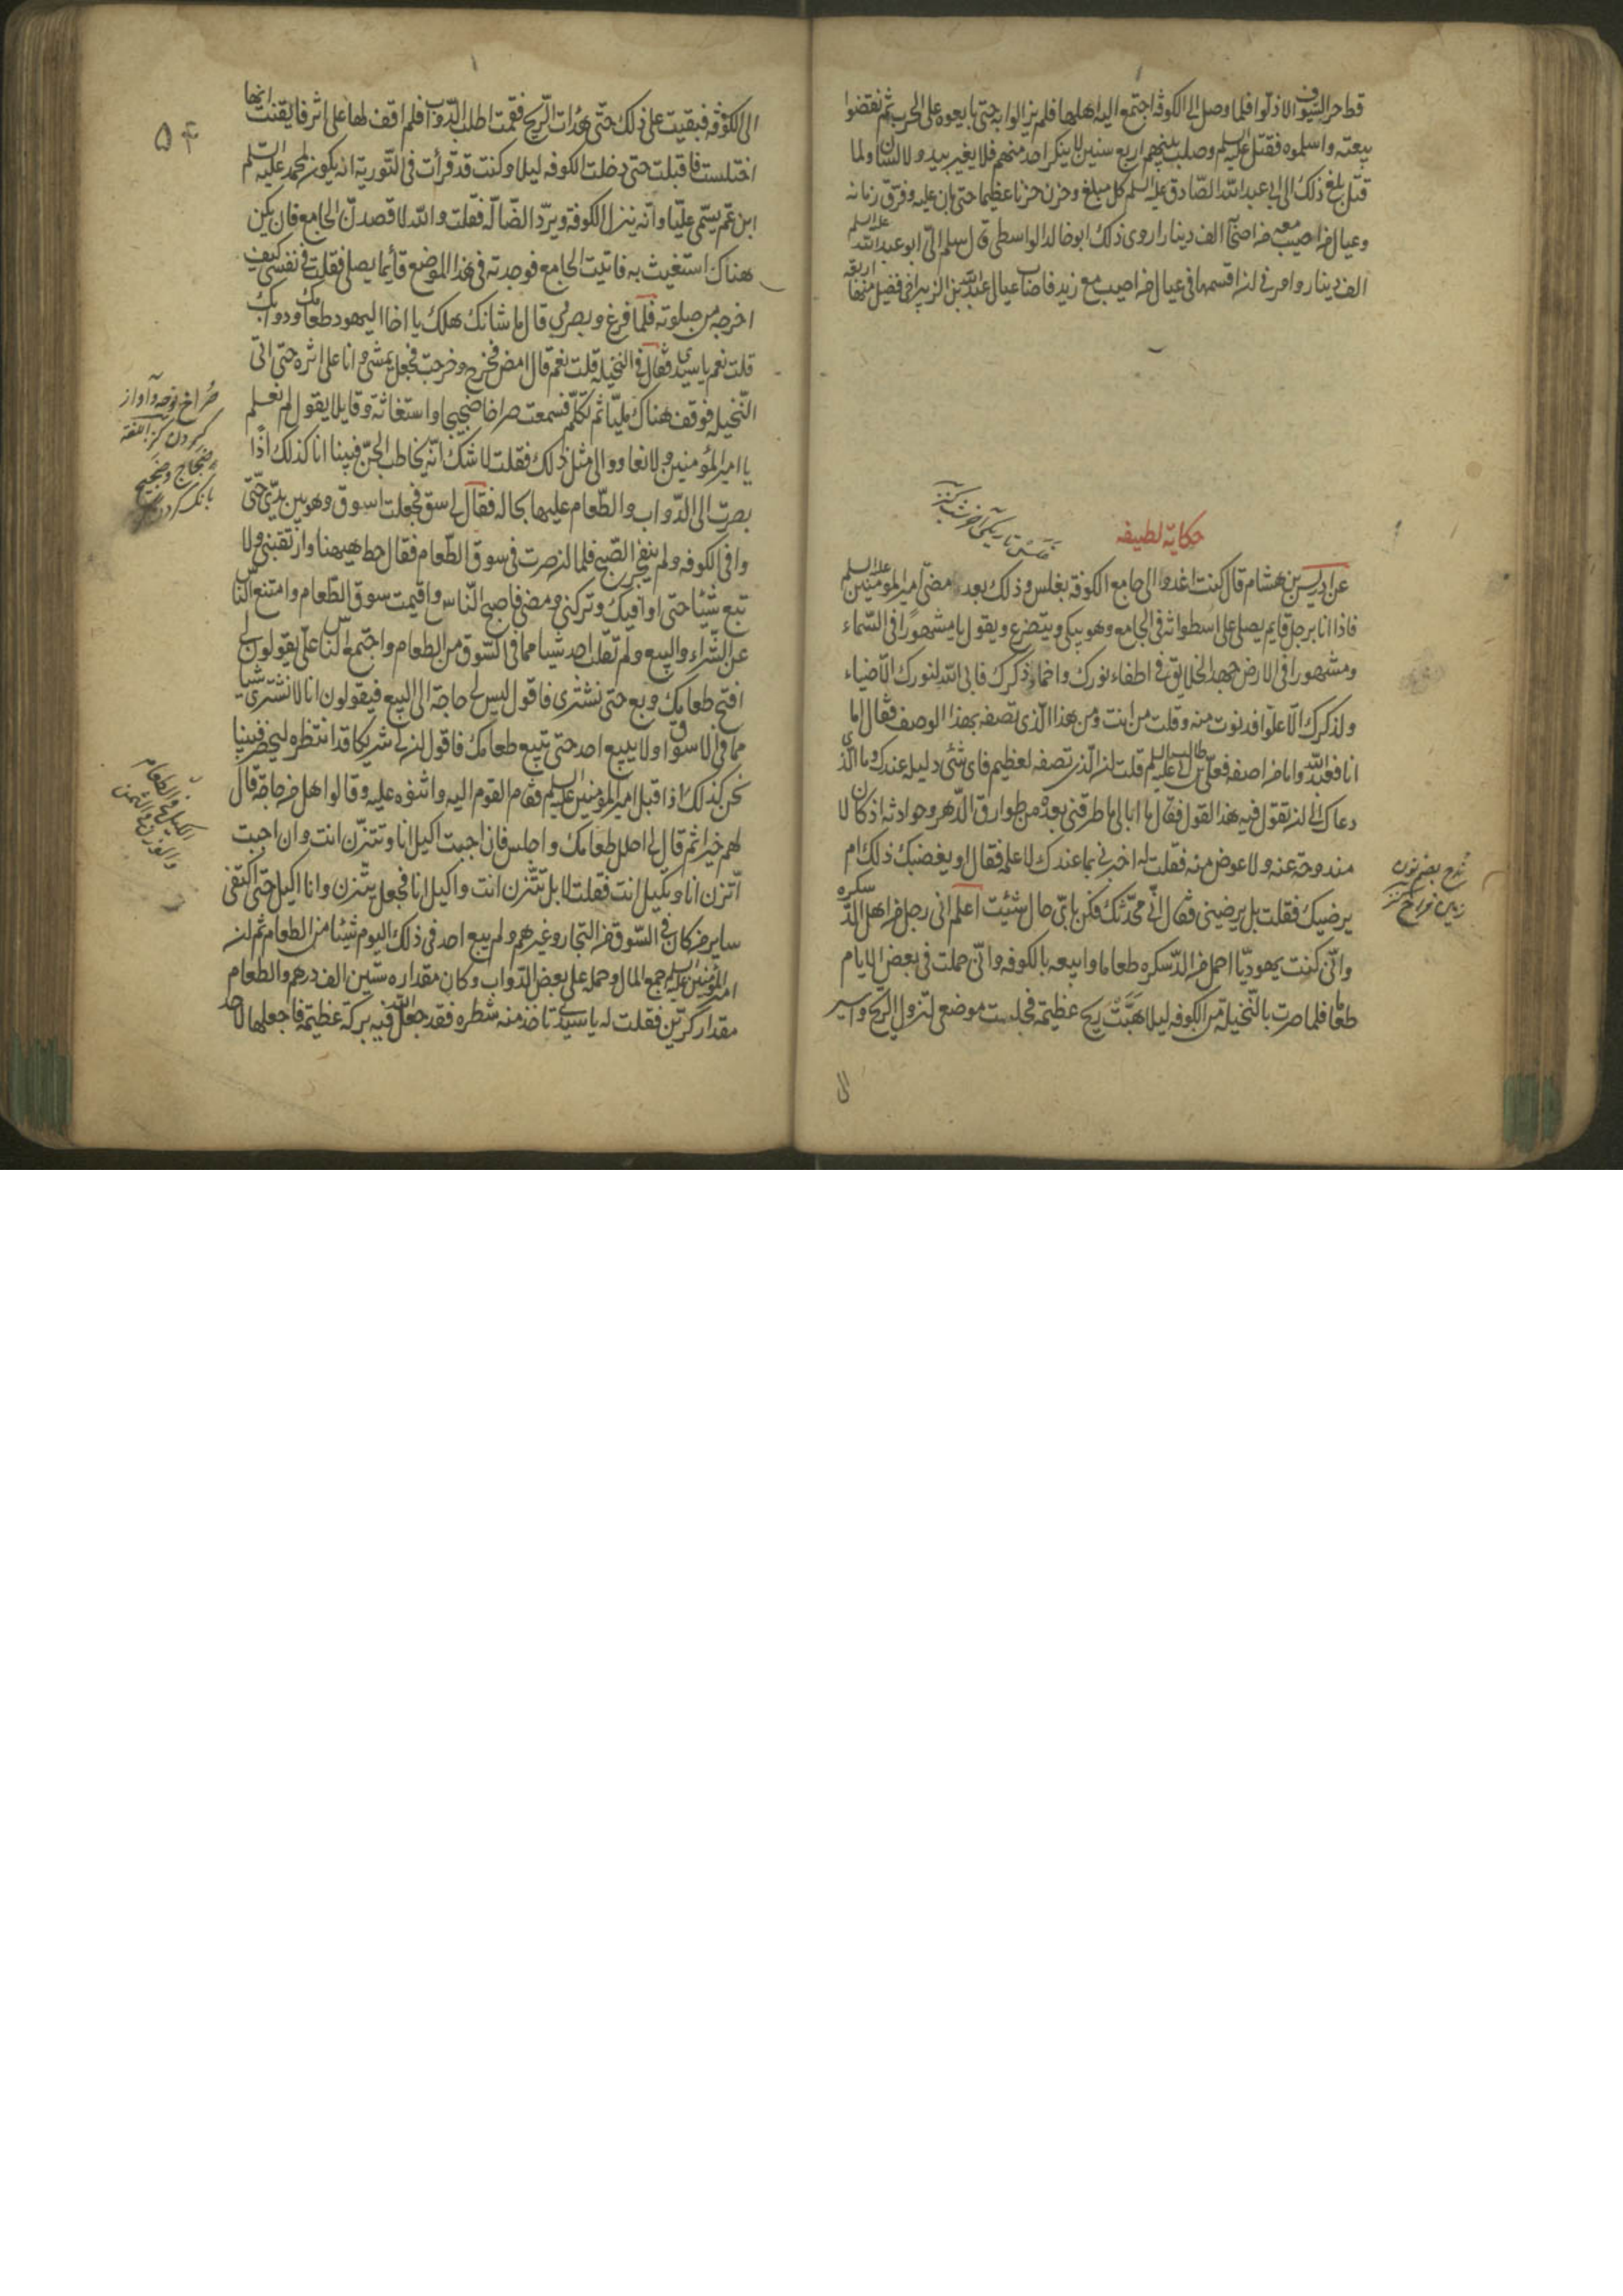 قط حر السيوف الا ذلوا فلما وصل الى الكوفة اجتمع اليه اهلها فلم يزالوا به حتى بايعوه على الحرب ثم نقضوا
بيعته واسلموه فقتل عليه السلم وصلب بينهم اربع سنين لا ينكر احد منهم فلا يغير بيد ولا لسان ولما
قتل بلغ ذلك الى ابى عبد الله الصادق عليه السلم كل مبلغ وحزن حزنا عظيما حتى بان عليه وفرق من ماله
وعيال من اصيب معه من اصحابه الف دينار اروى ذلك ابو خالد الواسطى قال سلم الى ابو عبد الله عليه السلم
الف دينار وامرنى ان اقسمها فى عيال من اصيب مع زيد فاصاب عيال عبد الله بن الزبير اخى فضيل منها اربعة
حكاية لطيفه
غلس تاريكى آخر شب كنز
عن ادريس بن هشام قال كنت اغدو الى جامع الكوفة بغلس وذلك بعد مضى امير المؤمنين عليه السلم
فاذا انا برجل قايم يصلى على اسطوانة فى الجامع وهو يبكى ويتضرع ويقول يا مشهورا فى السماء
ومشهورا فى الارض جهد الخلايق فى اطفاء نورك واخماد ذكرك فابى الله لنورك الا ضياء
ولذكرك الا علوا فدنوت منه وقلت من انت ومن هذا الذى تصفه بهذا الوصف فقال اما
انا فعبد الله واما من اصفه فعلى بن ابى طالب عليه السلم قلت ان الذى تصفه لعظيم فاى شئ دليله عندك وما الذى
دعاك الى ان تقول فيه هذا القول فقال ما ابالى ما طرقنى بعده من طوارق الدهر وحوادثه اذ كان لا
مندوحة عنه ولا عوض منه فقلت له اخبرنى بما عندك لاعلمه فقال او يغضبك ذلك ام
يرضيك فقلت بل يرضينى فقال انى محدثك فكن باى حال شئت اعلم انى رجل من اهل الدسكره
وانى كنت يهوديا احمل من الدسكره طعاما وابيعه بالكوفه وانى حملت فى بعض الايام
طعاما فلما صرت بالنخيلة من الكوفه ليلا هبت ريح عظيمة فجلست موضعى لنزول الريح واسير
الى
۵۴
الى الكوفه فبقيت على ذلك حتى هدات الريح فقمت اطلب الدواب فلم اقف لها على اثر فايقنت انها
اختلست فاقبلت حتى دخلت الكوفه ليلا وكنت قد قرأت فى التورية انه يكون لمحمد عليه السلم
ابن عم يسمى عليا وانه ينزل الكوفة ويرد الضالة فقلت والله لاقصدن الجامع فان يكن
هناك استغيث به فاتيت الجامع فوجدته فى هذا الموضع قائما يصلى فقلت فى نفسى كيف
اخرجه من صلوته فلما فرغ وبصر بى قال ما شانك هلك يا اخا اليهود طعامك ودوابك
قلت نعم يا سيدى فقال فى النخيله قلت نعم قال امض فخرج وخرجت فجعل يمشى وانا على اثره حتى اتى
النخيله فوقف هناك مليا ثم تكلم فسمعت صراخا ضجيجا واستغاثة وقايلا يقول لم نعلم
يا امير المؤمنين ولا نعاود الى مثل ذلك فقلت لا شك انه يخاطب الجن فبينا انا كذلك اذا
بصرت الى الدواب والطعام عليها بحاله فقال لى سق فجعلت اسوق وهو بين يدى حتى
وافى الكوفه ولم ينفجر الصبح فلما ان صرت فى سوق الطعام فقال حط هيهنا وارتقبنى ولا
تبع شيئا حتى اوافيك وتركنى ومضى فاصبح الناس واقيمت سوق الطعام وامتنع الناس
عن الشراء والبيع ولم تقلب احد شيا مما فى السوق من الطعام واجتمع الناس على يقولون لى
افتح طعامك وبع حتى نشترى فاقول ليس لى حاجة الى البيع فيقولون انا لا نشترى شيا
مما فى الاسواق ولا يبيع احد حتى تبيع طعامك فاقول ان لى شريكا قد انتظره ليحضر فبينا
نحن كذلك اذ اقبل امير المؤمنين عليه السلم فقام القوم اليه واثنوه عليه وقالوا اهل من حاجة قال
لهم خيرا ثم قال لى احلل طعامك واجلس فان احببت اكيل انا وتتزن انت وان احببت
اتزن انا وتكيل انت فقلت لا بل تتزن انت واكيل انا فجعل يتزن وانا اكيل حتى اكتفى
ساير من كان فى السوق من التجار وغيرهم ولم يبع احد فى ذلك اليوم شيئا من الطعام ثم ان
امير المؤمنين عليه السلم جمع المال وحمله على بعض الدواب وكان مقداره ستين الف درهم والطعام
مقدار كرتين فقلت له يا سيدى تاخذ منه شطره فقد جعل الله فيه بركة عظيمة فاجعلها لاحد
صراخ نوحه وآواز
كردن كنز اللغة
ضجاج وضجيج
بانك كردن
الكيل فى الطعام
والوزن فى الثمن